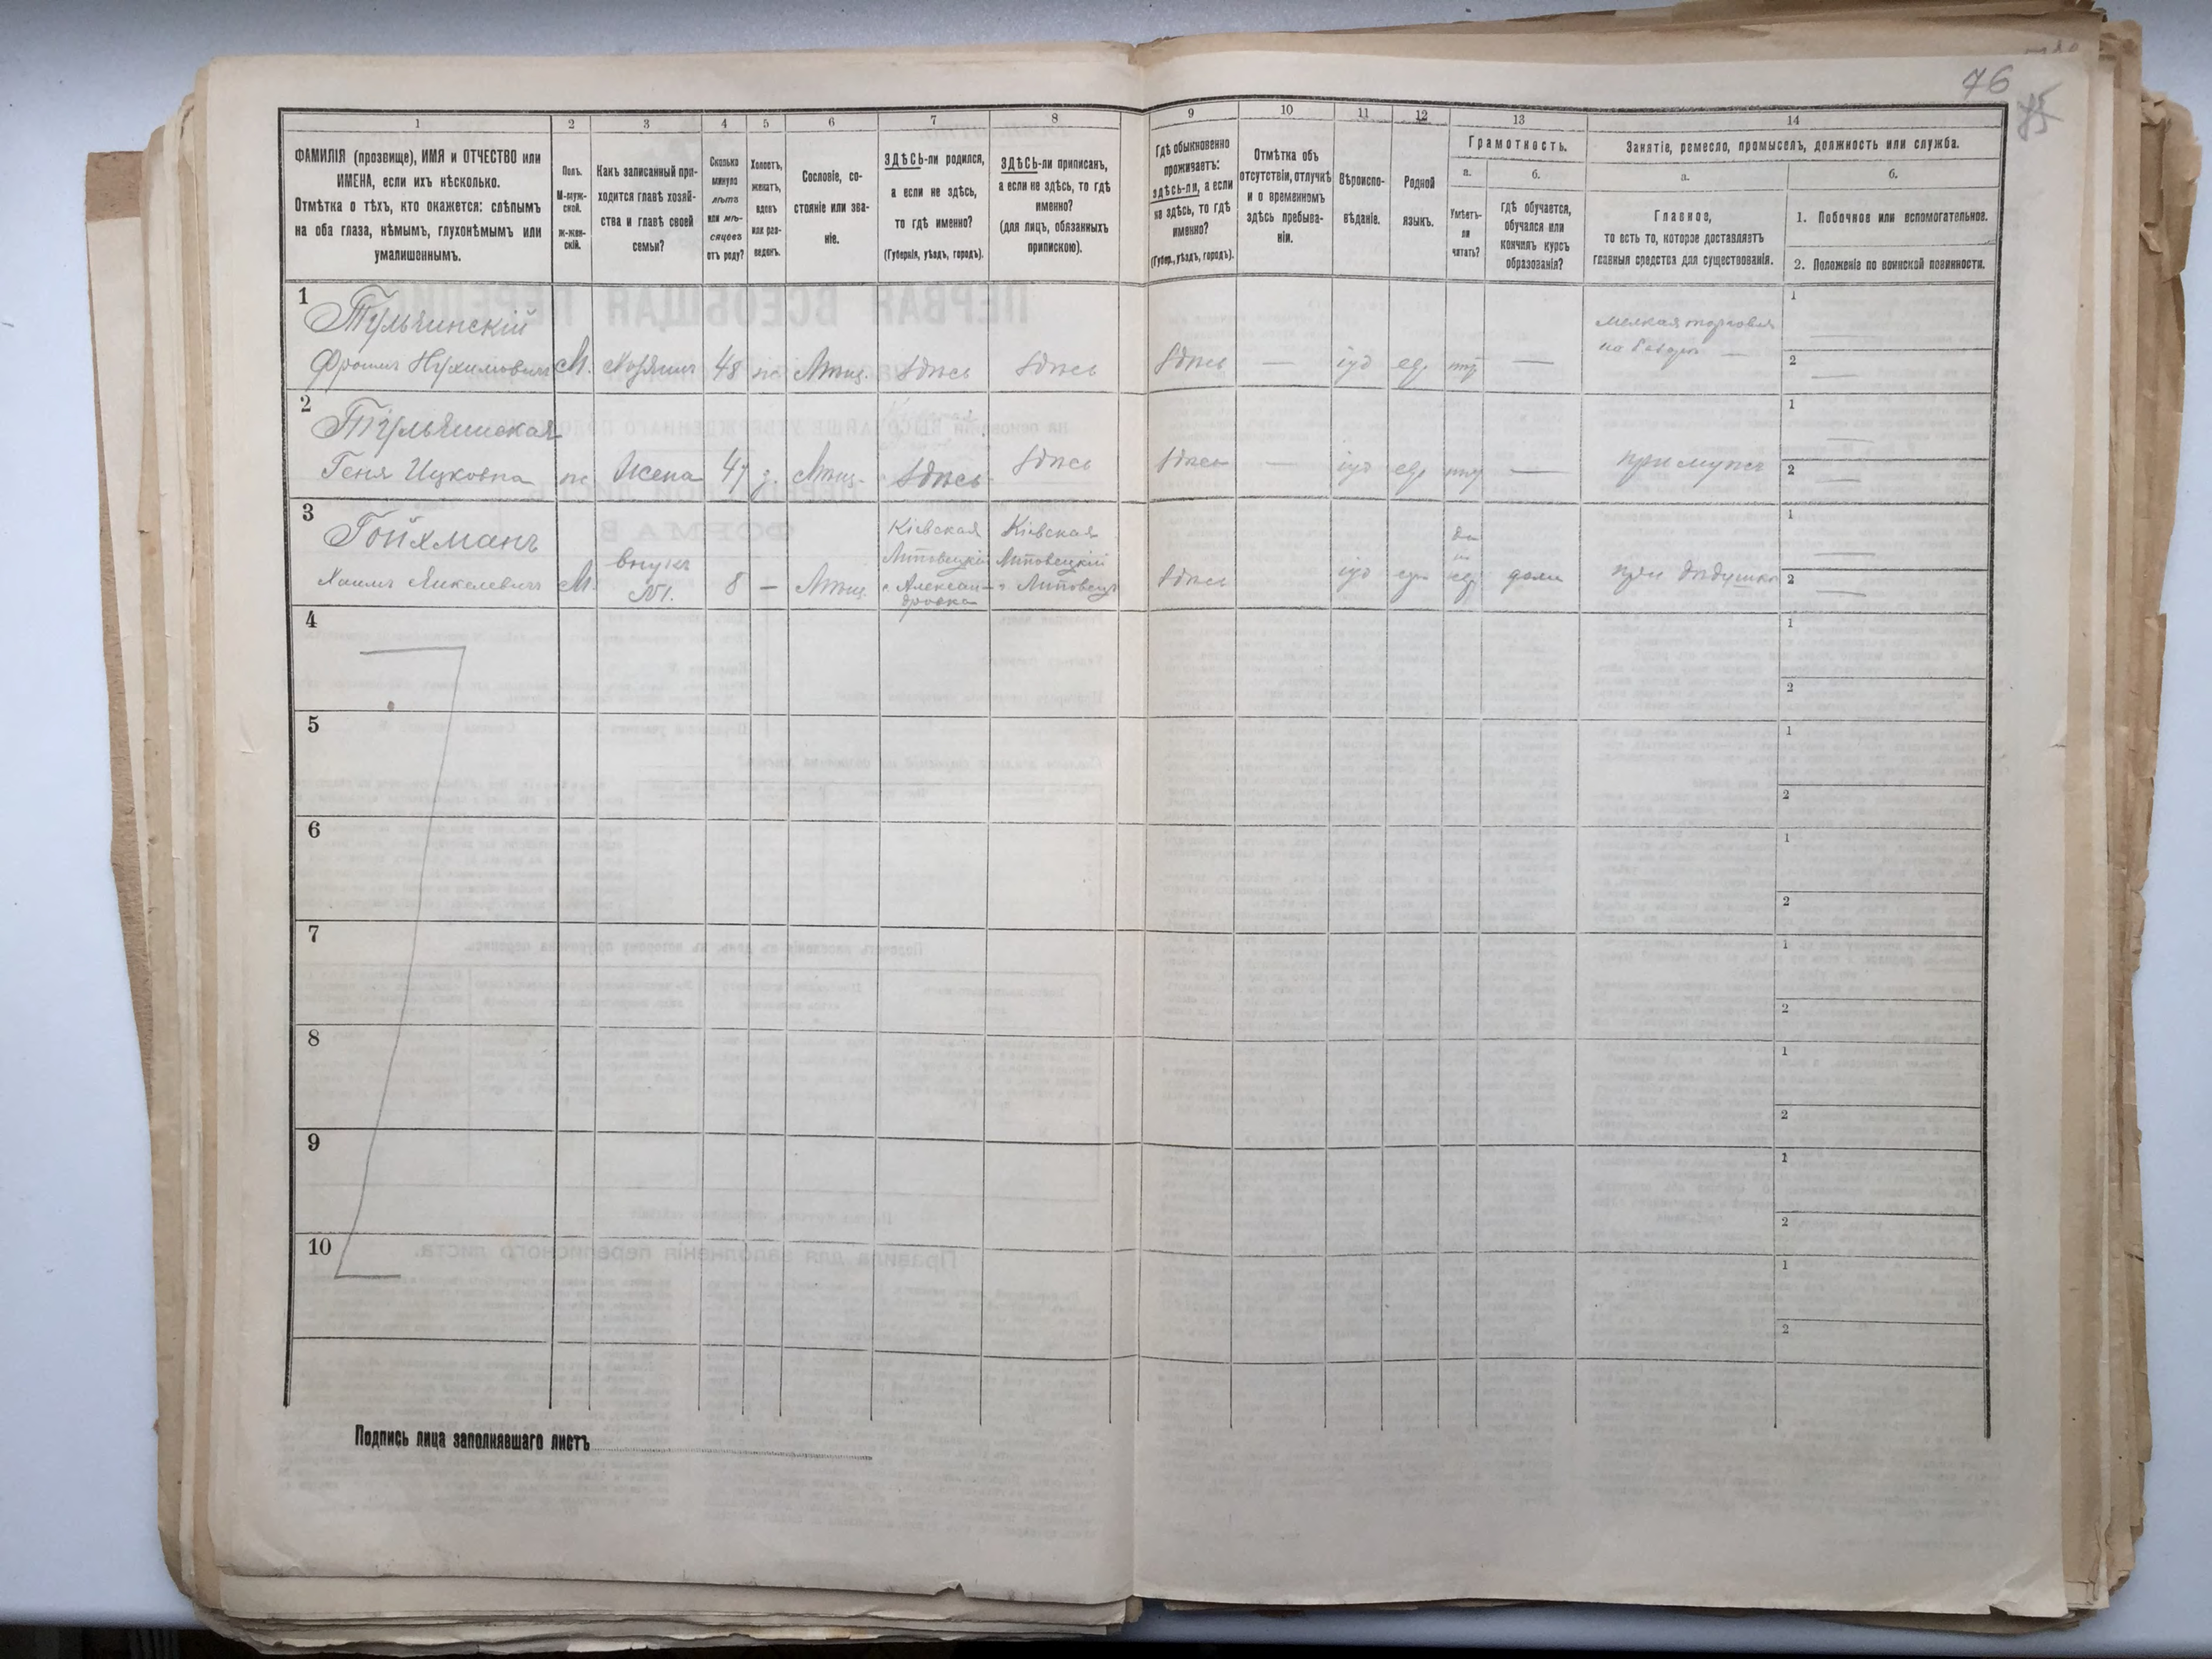 76
85
1
2
3
4
5
6
7
8
9
10
11
12
13
14
ФАМИЛІЯ (прозвище), ИМЯ и ОТЧЕСТВО или
ИМЕНА, если ихъ нѣсколько.
Отмѣтка о тѣхъ, кто окажется: слѣпымъ
на оба глаза, нѣмымъ, глухонѣмымъ или
умалишеннымъ.
Полъ.
М-муж-
ской.
ж-жен-
скій.
Какъ записанный при-
ходится главѣ хозяй-
ства и главѣ своей
семьи?
Сколько
минуло
лѣтъ
или мѣ-
сяцевъ
отъ роду?
Холостъ,
женатъ,
вдовъ
или раз-
веденъ.
Сословіе, со-
стояніе или зва-
ніе.
ЗДѢСЬ-ли родился,
а если не здѣсь,
то гдѣ именно?
(Губернія, уѣздъ, городъ).
ЗДѢСЬ-ли приписанъ,
а если не здѣсь, то гдѣ
именно?
(для лицъ, обязанныхъ
припискою).
Гдѣ обыкновенно
проживаетъ:
здѣсь-ли, а если
не здѣсь, то гдѣ
именно?
(Губер., уѣздъ, городъ).
Отмѣтка объ
отсутствіи, отлучкѣ
и о временномъ
здѣсь пребыва-
ніи.
Вѣроиспо-
вѣданіе.
Родной
языкъ.
Грамотность.
а.
б.
Умѣетъ-
ли
читать?
гдѣ обучается,
обучался или
кончилъ курсъ
образованія?
Занятіе, ремесло, промыселъ, должность или служба.
а.
б.
Главное,
то есть то, которое доставляетъ
главныя средства для существованія.
1. Побочное или вспомогательное.
2. Положеніе по воинской повинности.
1
Тульчинскій
Фроимъ Нухимовичъ М. Хозяинъ 48 ж. Мѣщ. Здѣсь Здѣсь Здѣсь — іуд евр нѣт —
мелкая торговля
на базарѣ —
1
2
2
Тульчинская
Геня Ицковна ж Жена 47 з. Мѣщ. Здѣсь Здѣсь Здѣсь — іуд евр нѣт — при мужѣ
1
2
3
Гойхманъ
Хаимъ Янкелевичъ М. внукъ 8 — Мѣщ.
Кіевская
Липовецкій
с. Алексан-
дровка
Кіевская
Липовецкій
г. Липовецъ
Здѣсь іуд евр да дома при дѣдушкѣ
1
2
4
1
2
5
1
2
6
1
2
7
1
2
8
1
2
9
1
2
10
1
2
Подпись лица заполнявшаго листъ